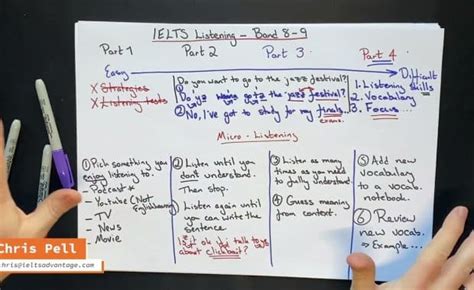 IELTS Listening - Band 8-9
Part 1 Part 2 Part 3 Part 4
Easy Difficult
X Strategies
X Listening tests
Do you want to go to the jazz festival?
① Do'yz gotz the jazz festival?
② No, I've got to study for my finals
exams.
1. Listening skills
2. Vocabulary
3. Focus...
Micro-Listening
① Pick something you
enjoy listening to.
- Podcast*
- YouTube (Not English learning)
- TV
- News
- Movie
② Listen until you
don't understand.
Then stop.
Listen again until
you can write the
sentence
Is it ok if I talk to yz
about clickbait?
③ Listen as many
times as you need
to fully understand.
④ Guess meaning
from context.
⑤ Add new
vocabulary
to a vocab.
notebook.
⑥ Review
new vocab.
⇒ Example...
Chris Pell
chris@ieltsadvantage.com